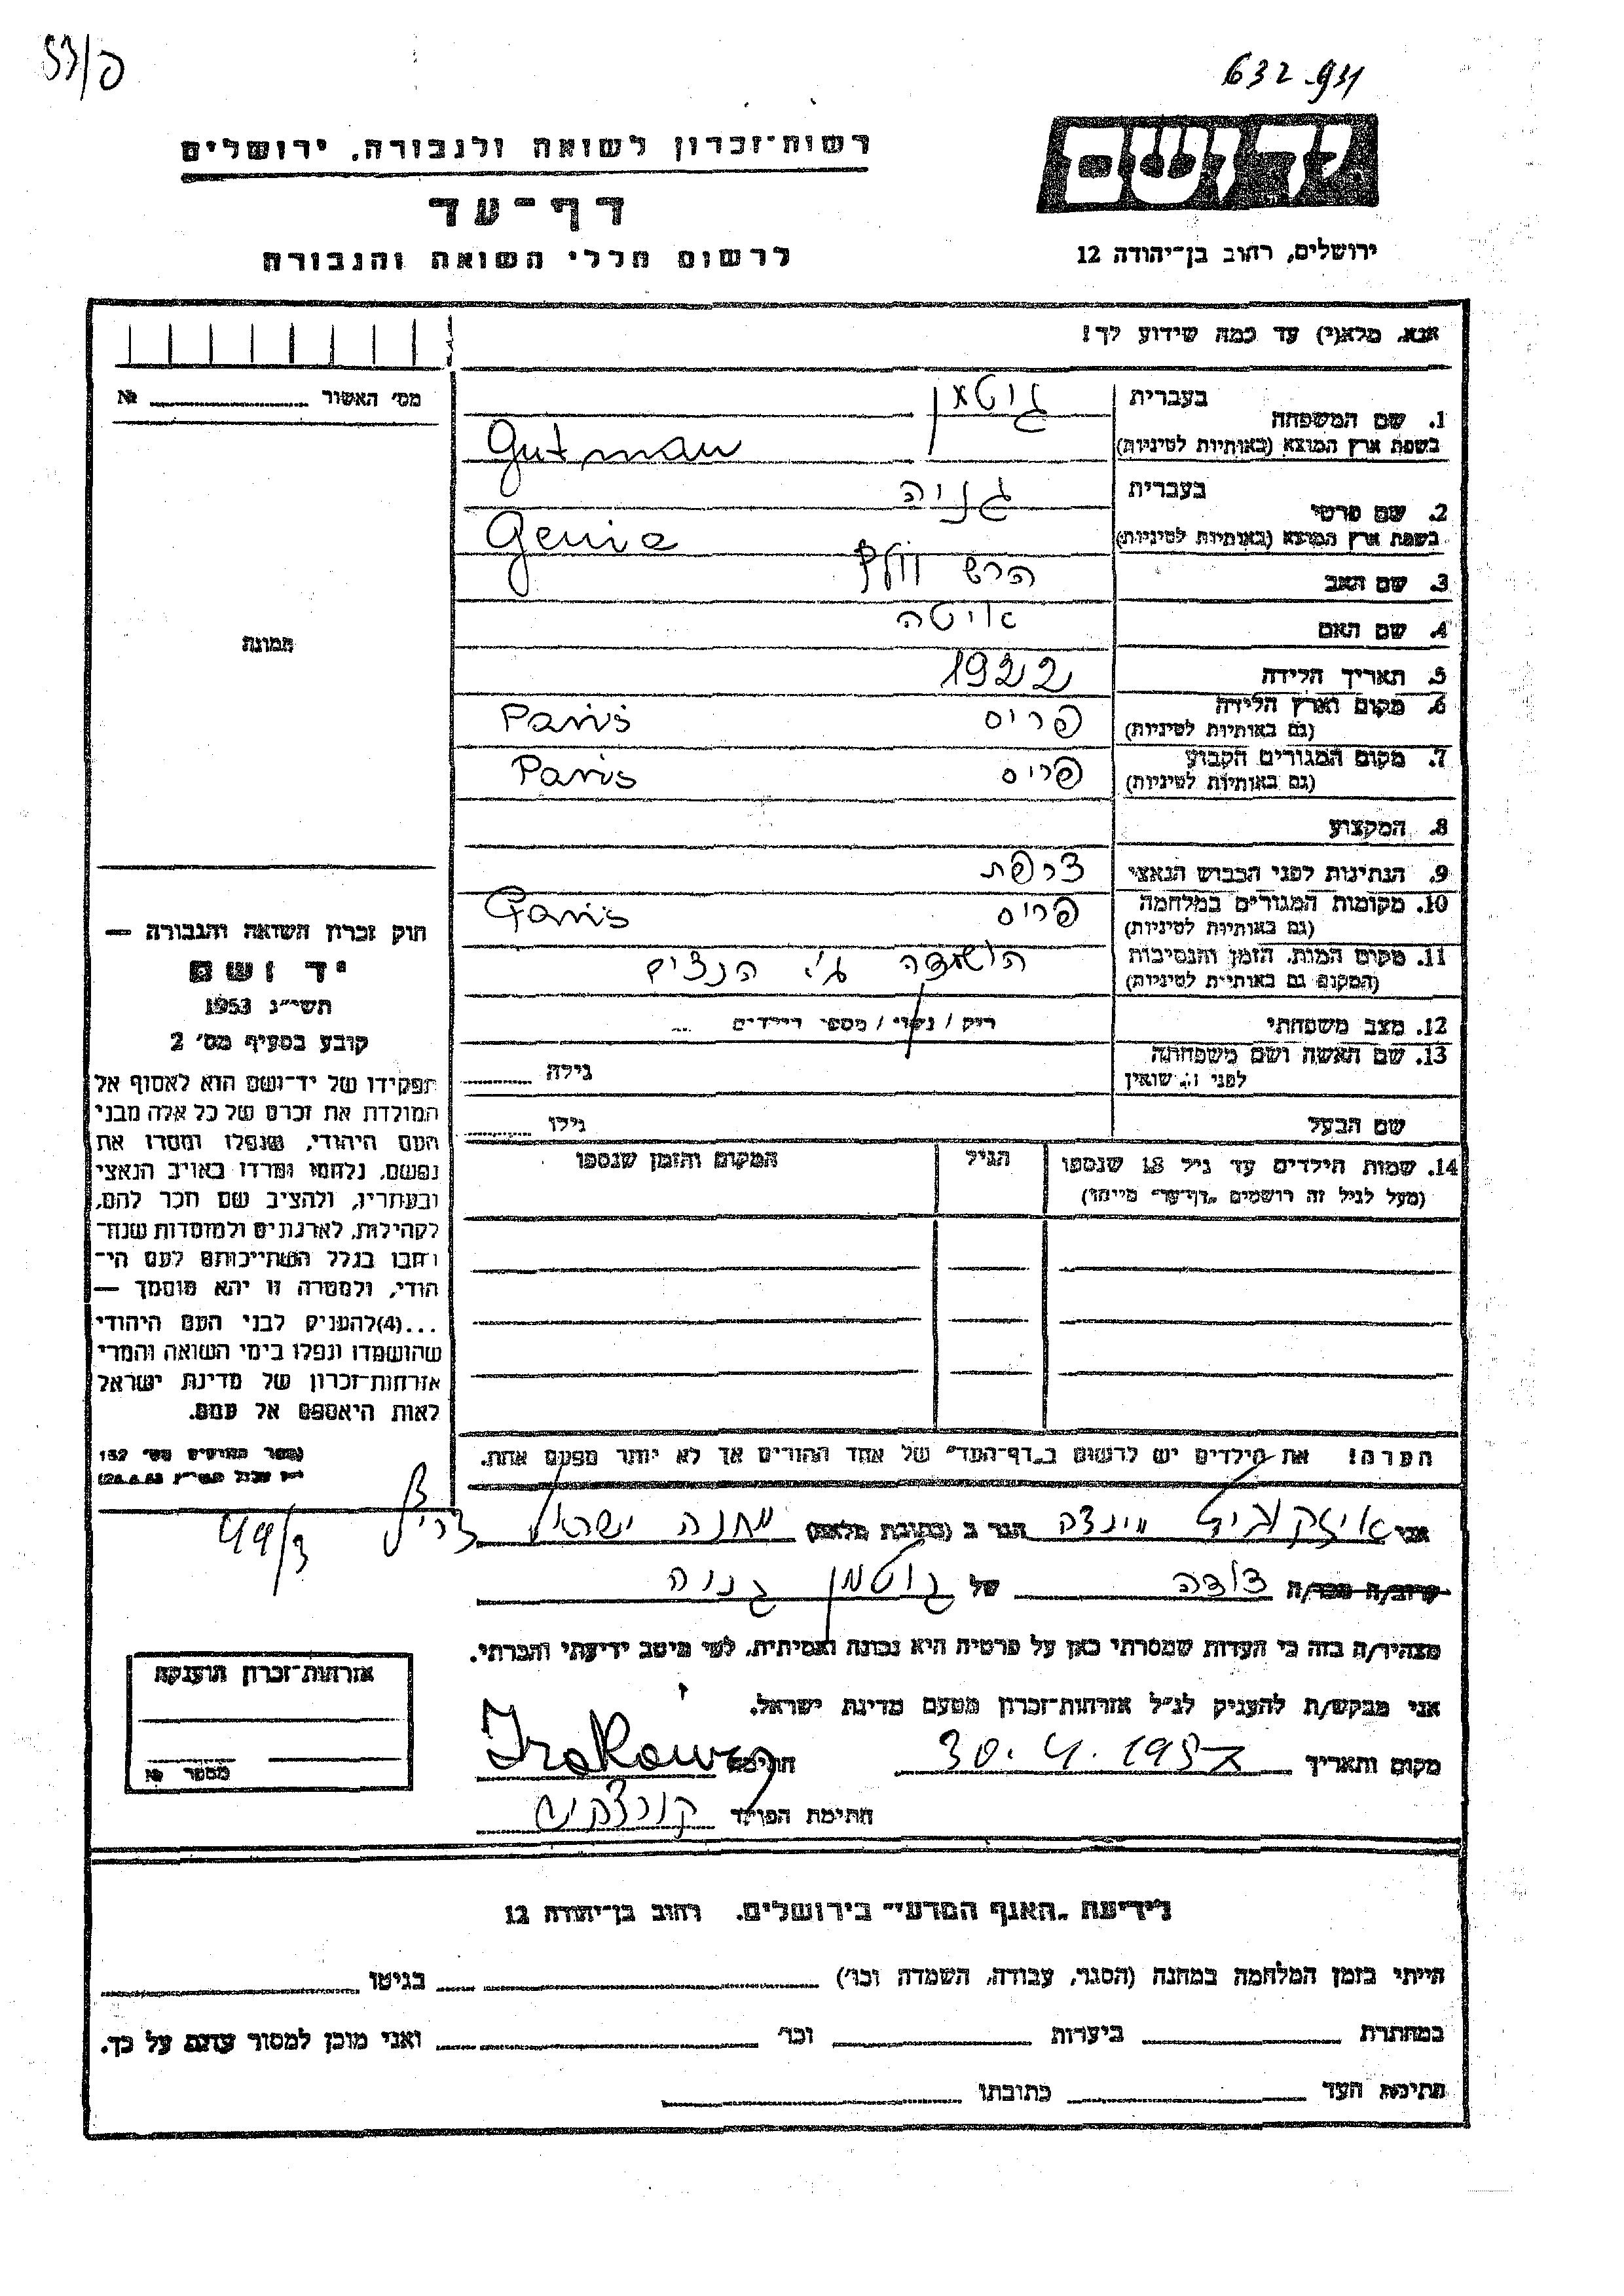 53/פ
632.931
יד ושם
ירושלים, רחוב בן־יהודה 12
רשות־זכרון לשואה ולגבורה, ירושלים
דף־עד
לרשום חללי השואה והגבורה
אנא, מלא(י) עד כמה שידוע לך!
מס' האשור № 
1. שם המשפחה בעברית גוטמן
בשפת ארץ המוצא (באותיות לטיניות) Gutman
2. שם פרטי בעברית גניה
בשפת ארץ המוצא (באותיות לטיניות) Genia
3. שם האב הרש וולף
4. שם האם איטה
5. תאריך הלידה 1922
6. מקום וארץ הלידה (גם באותיות לטיניות) פריס Paris
7. מקום המגורים הקבוע (גם באותיות לטיניות) פריס Paris
8. המקצוע
9. הנתינות לפני הכבוש הנאצי צרפת
10. מקומות המגורים במלחמה (גם באותיות לטיניות) פריס Paris
11. מקום המות, הזמן והנסיבות (המקום גם באותיות לטיניות) הושמדה ע"י הנצים
12. מצב משפחתי רוק / נשוי / מספר הילדים
13. שם האשה ושם משפחתה לפני הנשואין גילה
שם הבעל גילו
14. שמות הילדים עד גיל 18 שנספו הגיל המקום והזמן שנספו
(מעל לגיל זה רושמים „דף־עד" מיוחד)
הערה! את הילדים יש לרשום ב„דף־העד" של אחד ההורים אך לא יותר מפעם אחת.
תמונה
חוק זכרון השואה והגבורה —
יד ושם
תשי"ג 1953
קובע בסעיף מס' 2
תפקידו של יד־ושם הוא לאסוף אל
המולדת את זכרם של כל אלה מבני
העם היהודי, שנפלו ומסרו את
נפשם, נלחמו ומרדו באויב הנאצי
ובעוזריו, ולהציב שם וזכר להם,
לקהילות, לארגונים ולמוסדות שנח־
רבו בגלל השתייכותם לעם הי־
הודי, ולמטרה זו יהא מוסמך —
...(4) להעניק לבני העם היהודי
שהושמדו ונפלו בימי השואה והמרי
אזרחות־זכרון של מדינת ישראל
לאות היאספם אל עמם.
אני מינצה הגר ב (כתובת מלאה) מחנה ישראל צריף
קרוב/ה מכר/ה דודה של גוטמן גניה
מצהיר/ה בזה כי העדות שמסרתי כאן על פרטיה היא נכונה ואמיתית, לפי מיטב ידיעתי והכרתי.
אני מבקש/ת להעניק לנ"ל אזרחות־זכרון מטעם מדינת ישראל.
מקום ותאריך 30.4.1957 חתימה
חתימת הפוקד
אזרחות־זכרון הוענקה
מספר №
לידיעת „האגף המדעי" בירושלים, רחוב בן־יהודה 12
הייתי בזמן המלחמה במחנה (הסגר, עבודה, השמדה וכו') בגיטו
במחתרת ביערות וכו' ואני מוכן למסור עדות על כך.
חתימת העד כתובתו